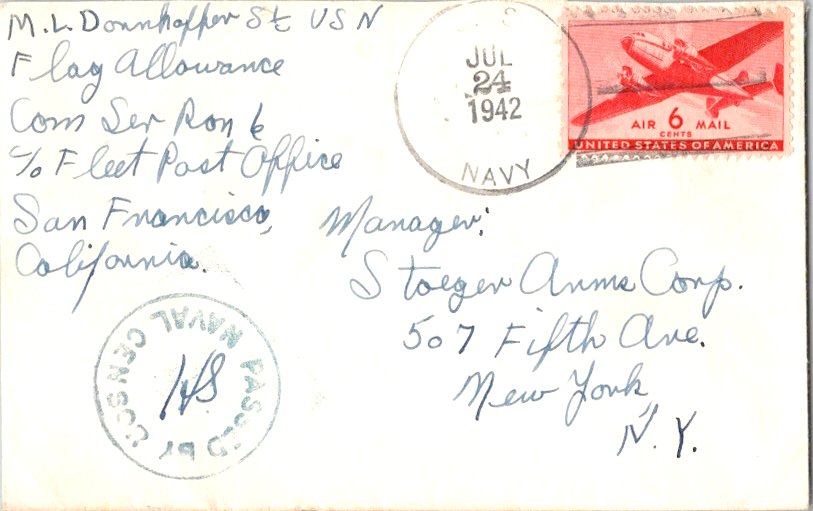 M. L. Donnhoffer St USN
Flag Allowance
Com Ser Ron 6
c/o Fleet Post Office
San Francisco,
California.
S
JUL
24
1942
NAVY
6
AIR MAIL
CENTS
UNITED STATES OF AMERICA
Manager:
Stoeger Arms Corp.
507 Fifth Ave.
New York,
N.Y.
PASSED BY NAVAL CENSOR